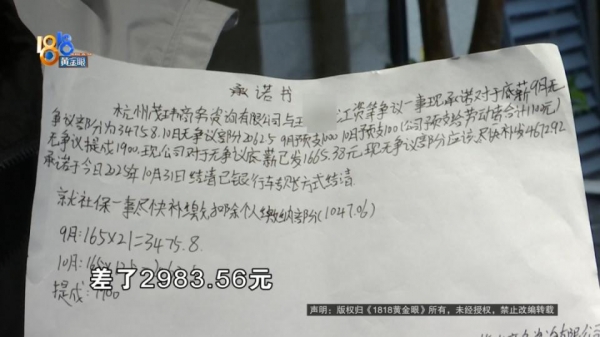 1818
黄金眼
承诺书
杭州茂玮商务咨询有限公司与王 江资等争议一事现承诺对于底薪9月无
争议部分为3475.8.10月无争议部分2062.5 9月预支100 10月预支100(公司预支给劳动者合计
无争议提成1900.现公司对于无争议底薪已发1665.33元.现无争议部分应该尽快补发4672.92
承诺于今日2025年10月31日结清已银行转账方式结清.
就社保一事尽快补缴,扣除个人缴纳部分(1047.06)
9月:165×21=3475.8.
10月:165×
提成:1900
差了2983.56元
声明:版权归《1818黄金眼》所有,未经授权,禁止改编转载